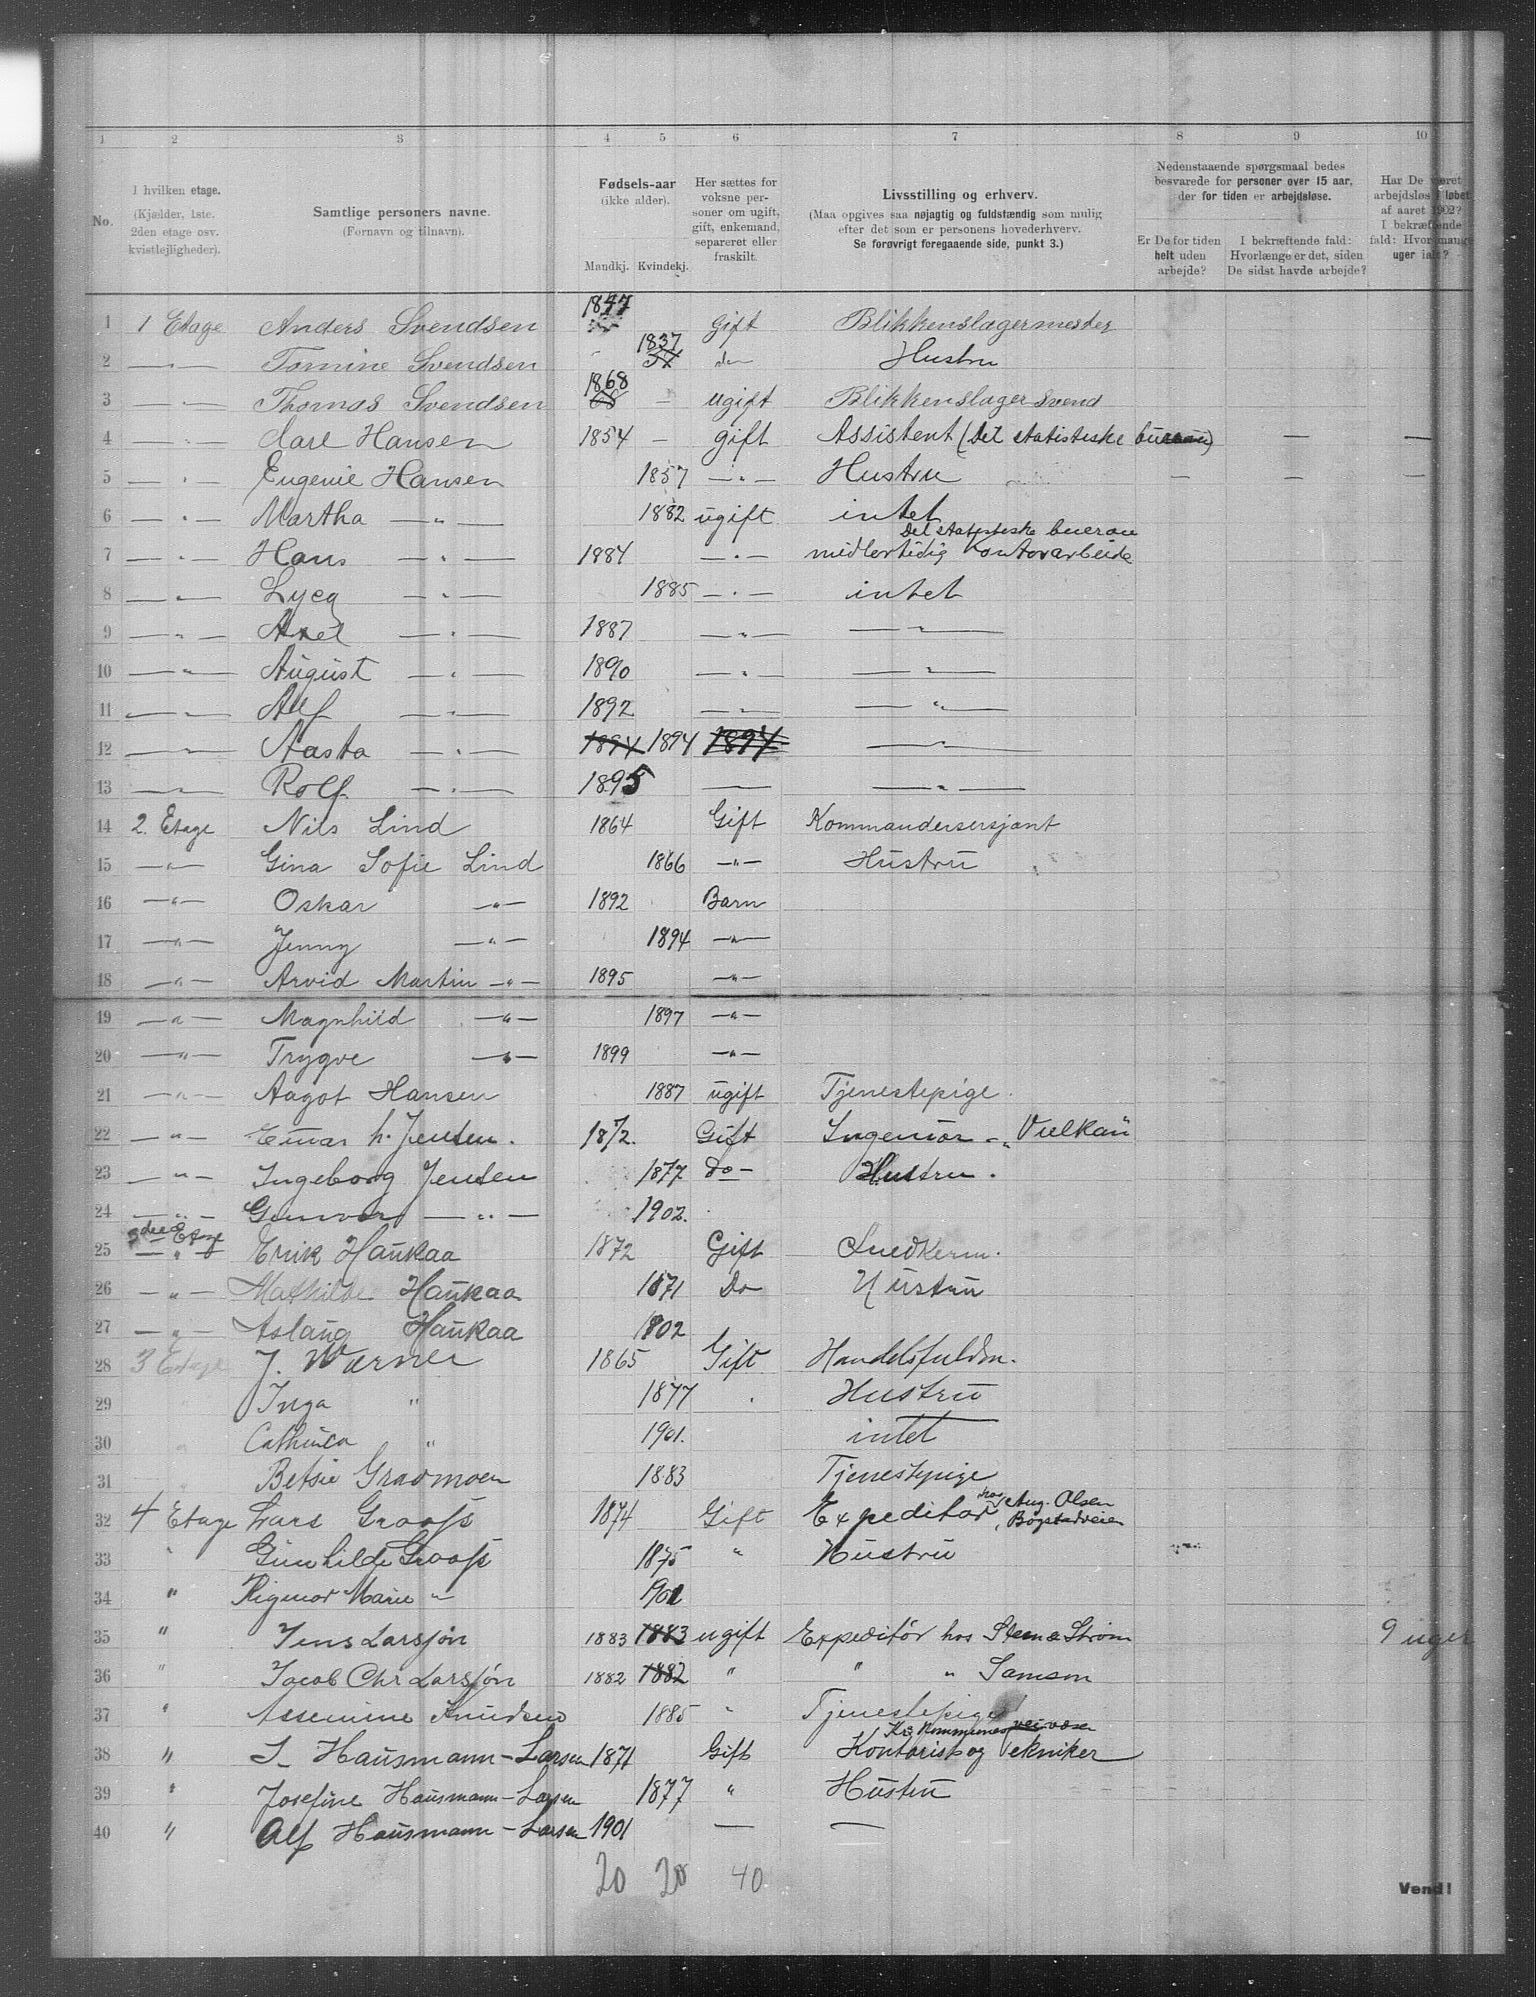 1 2 3 4 5 6 7 8 9 10
No. I hvilken etage. (Kjælder, 1ste. 2den etage osv. kvistlejligheder). Samtlige personers navne. (Fornavn og tilnavn). Fødsels-aar (ikke alder). Mandkj. Kvindekj. Her sættes for voksne personer om ugift, gift, enkemand, separeret eller fraskilt. Livsstilling og erhverv. (Maa opgives saa nøjagtig og fuldstændig som mulig efter det som er personens hovederhverv. Se forøvrigt foregaaende side, punkt 3.) Nedenstaaende spørgsmaal bedes besvarede for personer over 15 aar, der for tiden er arbejdsløse. Er De for tiden helt uden arbejde? I bekræftende fald: Hvorlænge er det, siden De sidst havde arbejde? Har De været arbejdsløs i løbet af aaret 1902? I bekræftende fald: Hvor mange uger ialt?
1 1 Etage Anders Svendsen 1847 Gift Blikkenslagermester
2 — " — Tomine Svendsen 1837 do Hustru
3 — " — Thomas Svendsen 1868 — ugift Blikkenslager Svend
4 — " — Carl Hansen 1854 — gift Assistent (Det statistiske bureau) — —
5 — " — Eugenie Hansen 1857 — " — Hustru — — —
6 — " — Martha — " — 1882 ugift intet
7 — " — Hans — " — 1884 — " — Det statistiske buerau midlertidig Kontorarbeide
8 — " — Lyeg — " — 1885 — " — intet
9 — " — Axel — " — 1887 — " — — " —
10 — " — August — " — 1890 — " — — " —
11 — " — Alf — " — 1892 — " — — " —
12 — " — Aasta — " — 1894 1894 1894 — " —
13 — " — Rolf — " — 1895 — — " —
14 2. Etage Nils Lind 1864 Gift Kommandersersjant
15 — " — Gina Sofie Lind 1866 — " — Hustru
16 — " — Oskar — " — 1892 Barn
17 — " — Jenny — " — 1894 — " —
18 — " — Arvid Martin — " — 1895 — " —
19 — " — Magnhild — " — 1897 — " —
20 — " — Trygve — " — 1899 — " —
21 — " — Aagot Hansen 1887 ugift Tjenestepige.
22 — " — Einar h. Jensen. 1872. Gift Ingeniør — " Vulkan
23 — " — Ingeborg Jensen 1877 Do — Hustru.
24 — " — Gunvor — " — 1902.
25 3die Etage — " — Erik Haukaa 1872 Gift Snedkerm.
26 — " — Mathilde Haukaa 1871 Do Hustru
27 — " — Aslaug Haukaa 1802
28 3 Etage J. Warner 1865 Gift Handelsfuldm.
29 Inga " 1877 Hustru
30 Cathinca " 1901. intet
31 Betsie Gradmoen 1883 Tjenestepige
32 4 Etage Lars Graafs 1874 Gift Expeditør hos Aug. Olsen, Bogstadveien
33 " Gunhilde Graafs 1875 " Hustru
34 " Rigmor Marie " 1901
35 " Jens Larsjøn 1883 1883 ugift Expeditør hos Steen & Strøm 9 uger
36 " Jacob Chr Larsjøn 1882 1882 " " " Samson
37 " Assemine Knudsen 1885 " Tjenestepige
38 " S. Hausmann-Larsen 1871 Gift Kr. Kommunes veivæsen Kontorist og Tekniker
39 " Josefine Hausmann-Larsen 1877 " Hustru
40 " Alf Hausmann-Larsen 1901 — —
20 20 40
Vend!